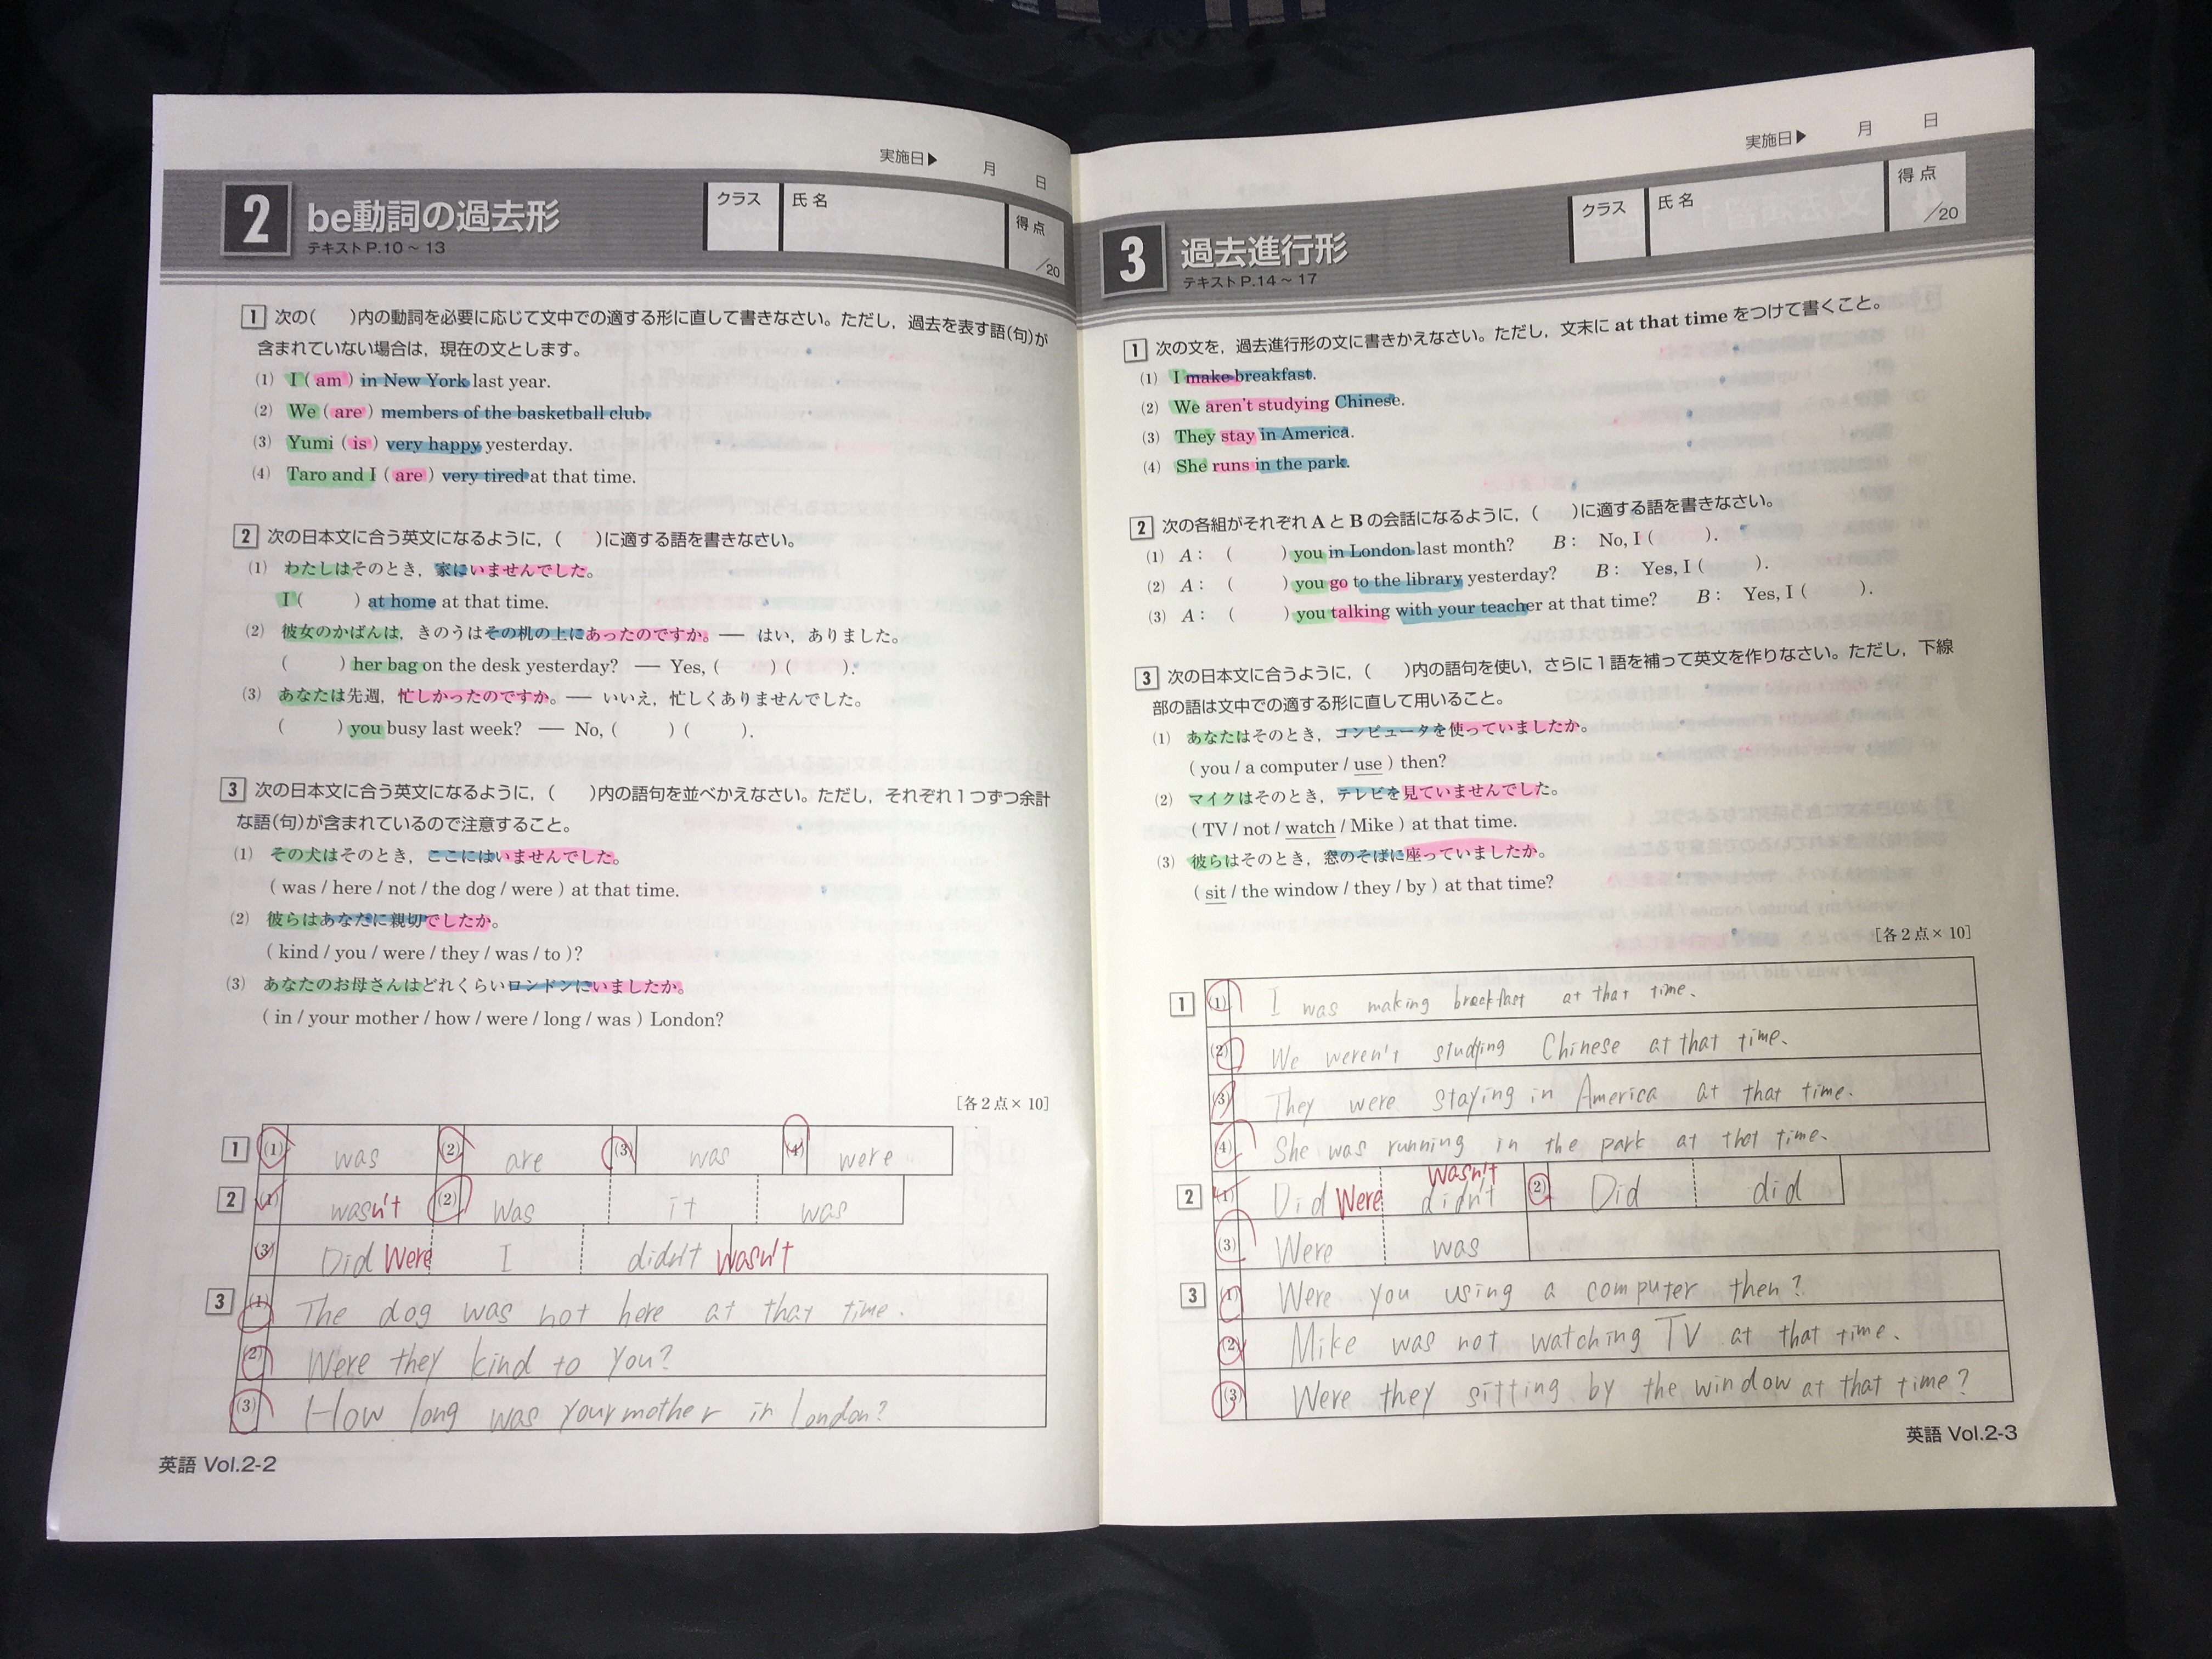 実施日▶ 月 日
2 be動詞の過去形
テキストP.10～13
クラス 氏名 得点 /20
1 次の( )内の動詞を必要に応じて文中での適する形に直して書きなさい。ただし，過去を表す語(句)が
含まれていない場合は，現在の文とします。
(1) I ( am ) in New York last year.
(2) We ( are ) members of the basketball club.
(3) Yumi ( is ) very happy yesterday.
(4) Taro and I ( are ) very tired at that time.
2 次の日本文に合う英文になるように，( )に適する語を書きなさい。
(1) わたしはそのとき，家にいませんでした。
I ( ) at home at that time.
(2) 彼女のかばんは，きのうはその机の上にあったのですか。── はい，ありました。
( ) her bag on the desk yesterday? ── Yes, ( ) ( ).
(3) あなたは先週，忙しかったのですか。── いいえ，忙しくありませんでした。
( ) you busy last week? ── No, ( ) ( ).
3 次の日本文に合う英文になるように，( )内の語句を並べかえなさい。ただし，それぞれ1つずつ余計
な語(句)が含まれているので注意すること。
(1) その犬はそのとき，ここにはいませんでした。
( was / here / not / the dog / were ) at that time.
(2) 彼らはあなたに親切でしたか。
( kind / you / were / they / was / to )?
(3) あなたのお母さんはどれくらいロンドンにいましたか。
( in / your mother / how / were / long / was ) London?
[各2点×10]
1 (1) was (2) are (3) was (4) were
2 (1) wasn't (2) Was it was
(3) Did Were I didn't wasn't
3 (1) The dog was not here at that time.
(2) Were they kind to you?
(3) How long was your mother in London?
英語 Vol.2-2
実施日▶ 月 日
3 過去進行形
テキストP.14～17
クラス 氏名 得点 /20
1 次の文を，過去進行形の文に書きかえなさい。ただし，文末に at that time をつけて書くこと。
(1) I make breakfast.
(2) We aren't studying Chinese.
(3) They stay in America.
(4) She runs in the park.
2 次の各組がそれぞれ A と B の会話になるように，( )に適する語を書きなさい。
(1) A : ( ) you in London last month? B : No, I ( ).
(2) A : ( ) you go to the library yesterday? B : Yes, I ( ).
(3) A : ( ) you talking with your teacher at that time? B : Yes, I ( ).
3 次の日本文に合うように，( )内の語句を使い，さらに1語を補って英文を作りなさい。ただし，下線
部の語は文中での適する形に直して用いること。
(1) あなたはそのとき，コンピュータを使っていましたか。
( you / a computer / use ) then?
(2) マイクはそのとき，テレビを見ていませんでした。
( TV / not / watch / Mike ) at that time.
(3) 彼らはそのとき，窓のそばに座っていましたか。
( sit / the window / they / by ) at that time?
[各2点×10]
1 (1) I was making breakfast at that time.
(2) We weren't studying Chinese at that time.
(3) They were staying in America at that time.
(4) She was running in the park at that time.
wasn't
2 (1) Did Were didn't (2) Did did
(3) Were was
3 (1) Were you using a computer then?
(2) Mike was not watching TV at that time.
(3) Were they sitting by the window at that time?
英語 Vol.2-3